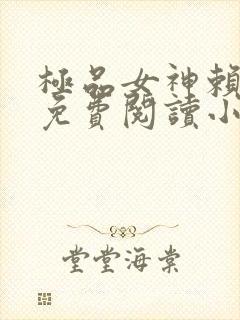 極品女神賴
免費閱讀小
堂堂海棠